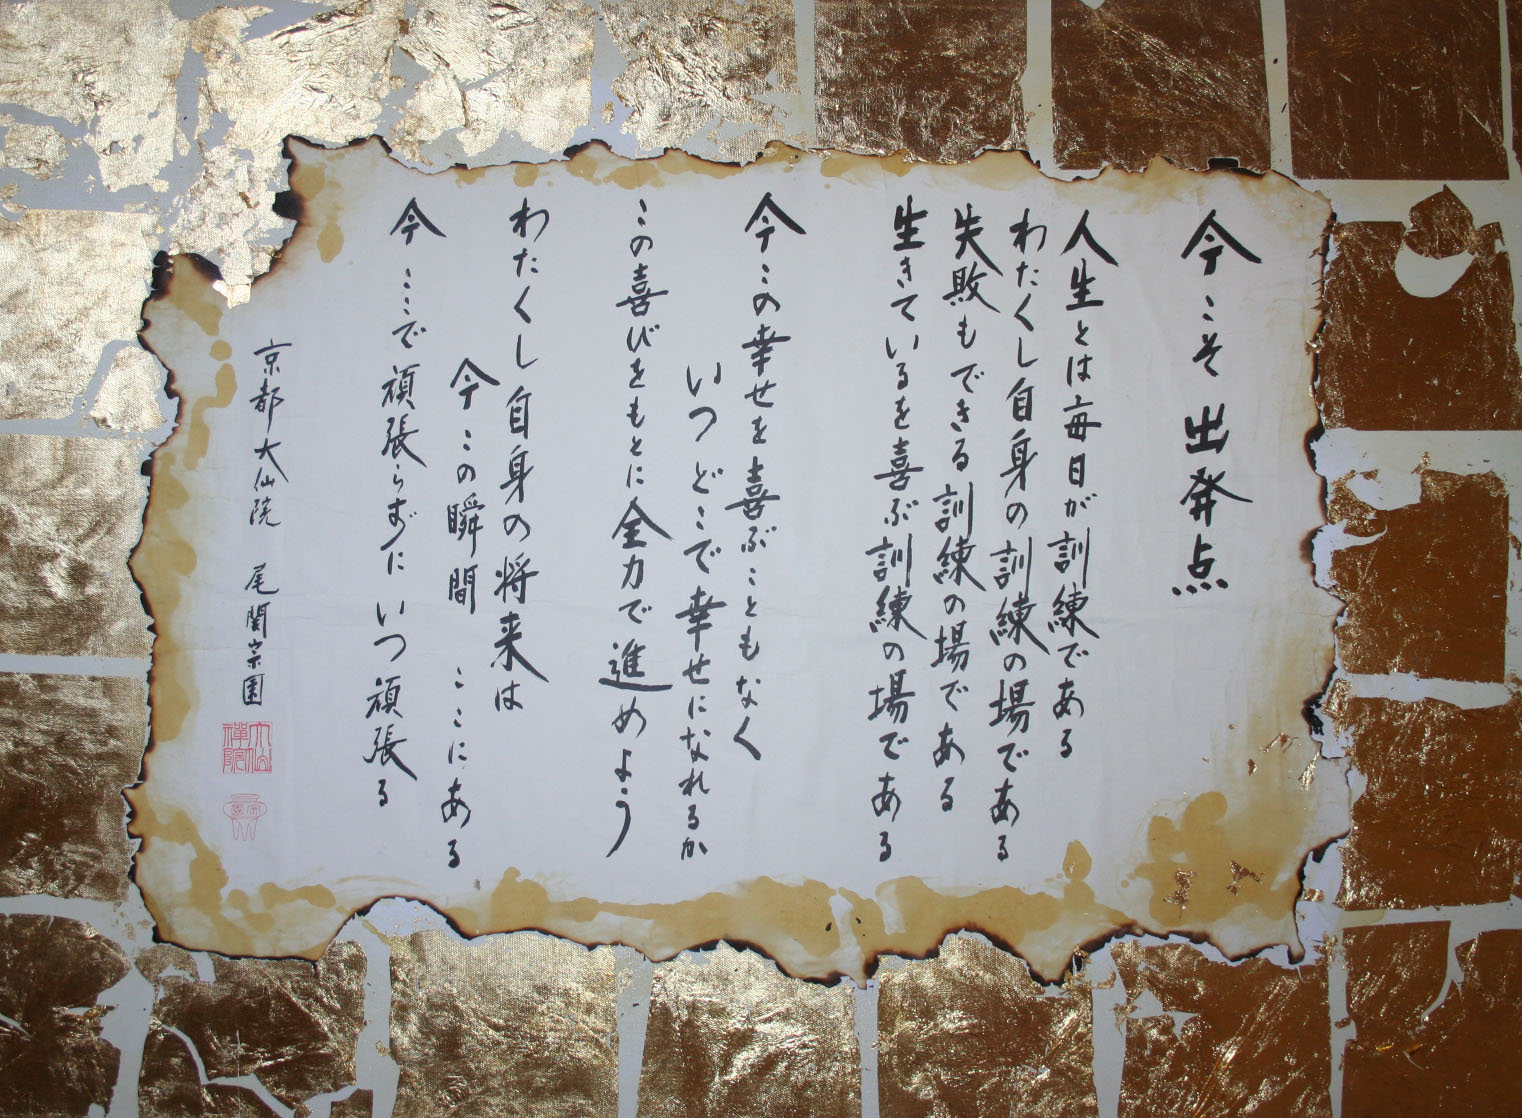 今こそ出発点
人生とは毎日が訓練である
わたくし自身の訓練の場である
失敗もできる訓練の場である
生きているを喜ぶ訓練の場である
今この幸せを喜ぶこともなく
いつどこで幸せになれるか
この喜びをもとに全力で進めよう
わたくし自身の将来は
今この瞬間ここにある
今ここで頑張らずにいつ頑張る
京都大仙院 尾関宗園
大仙禅院